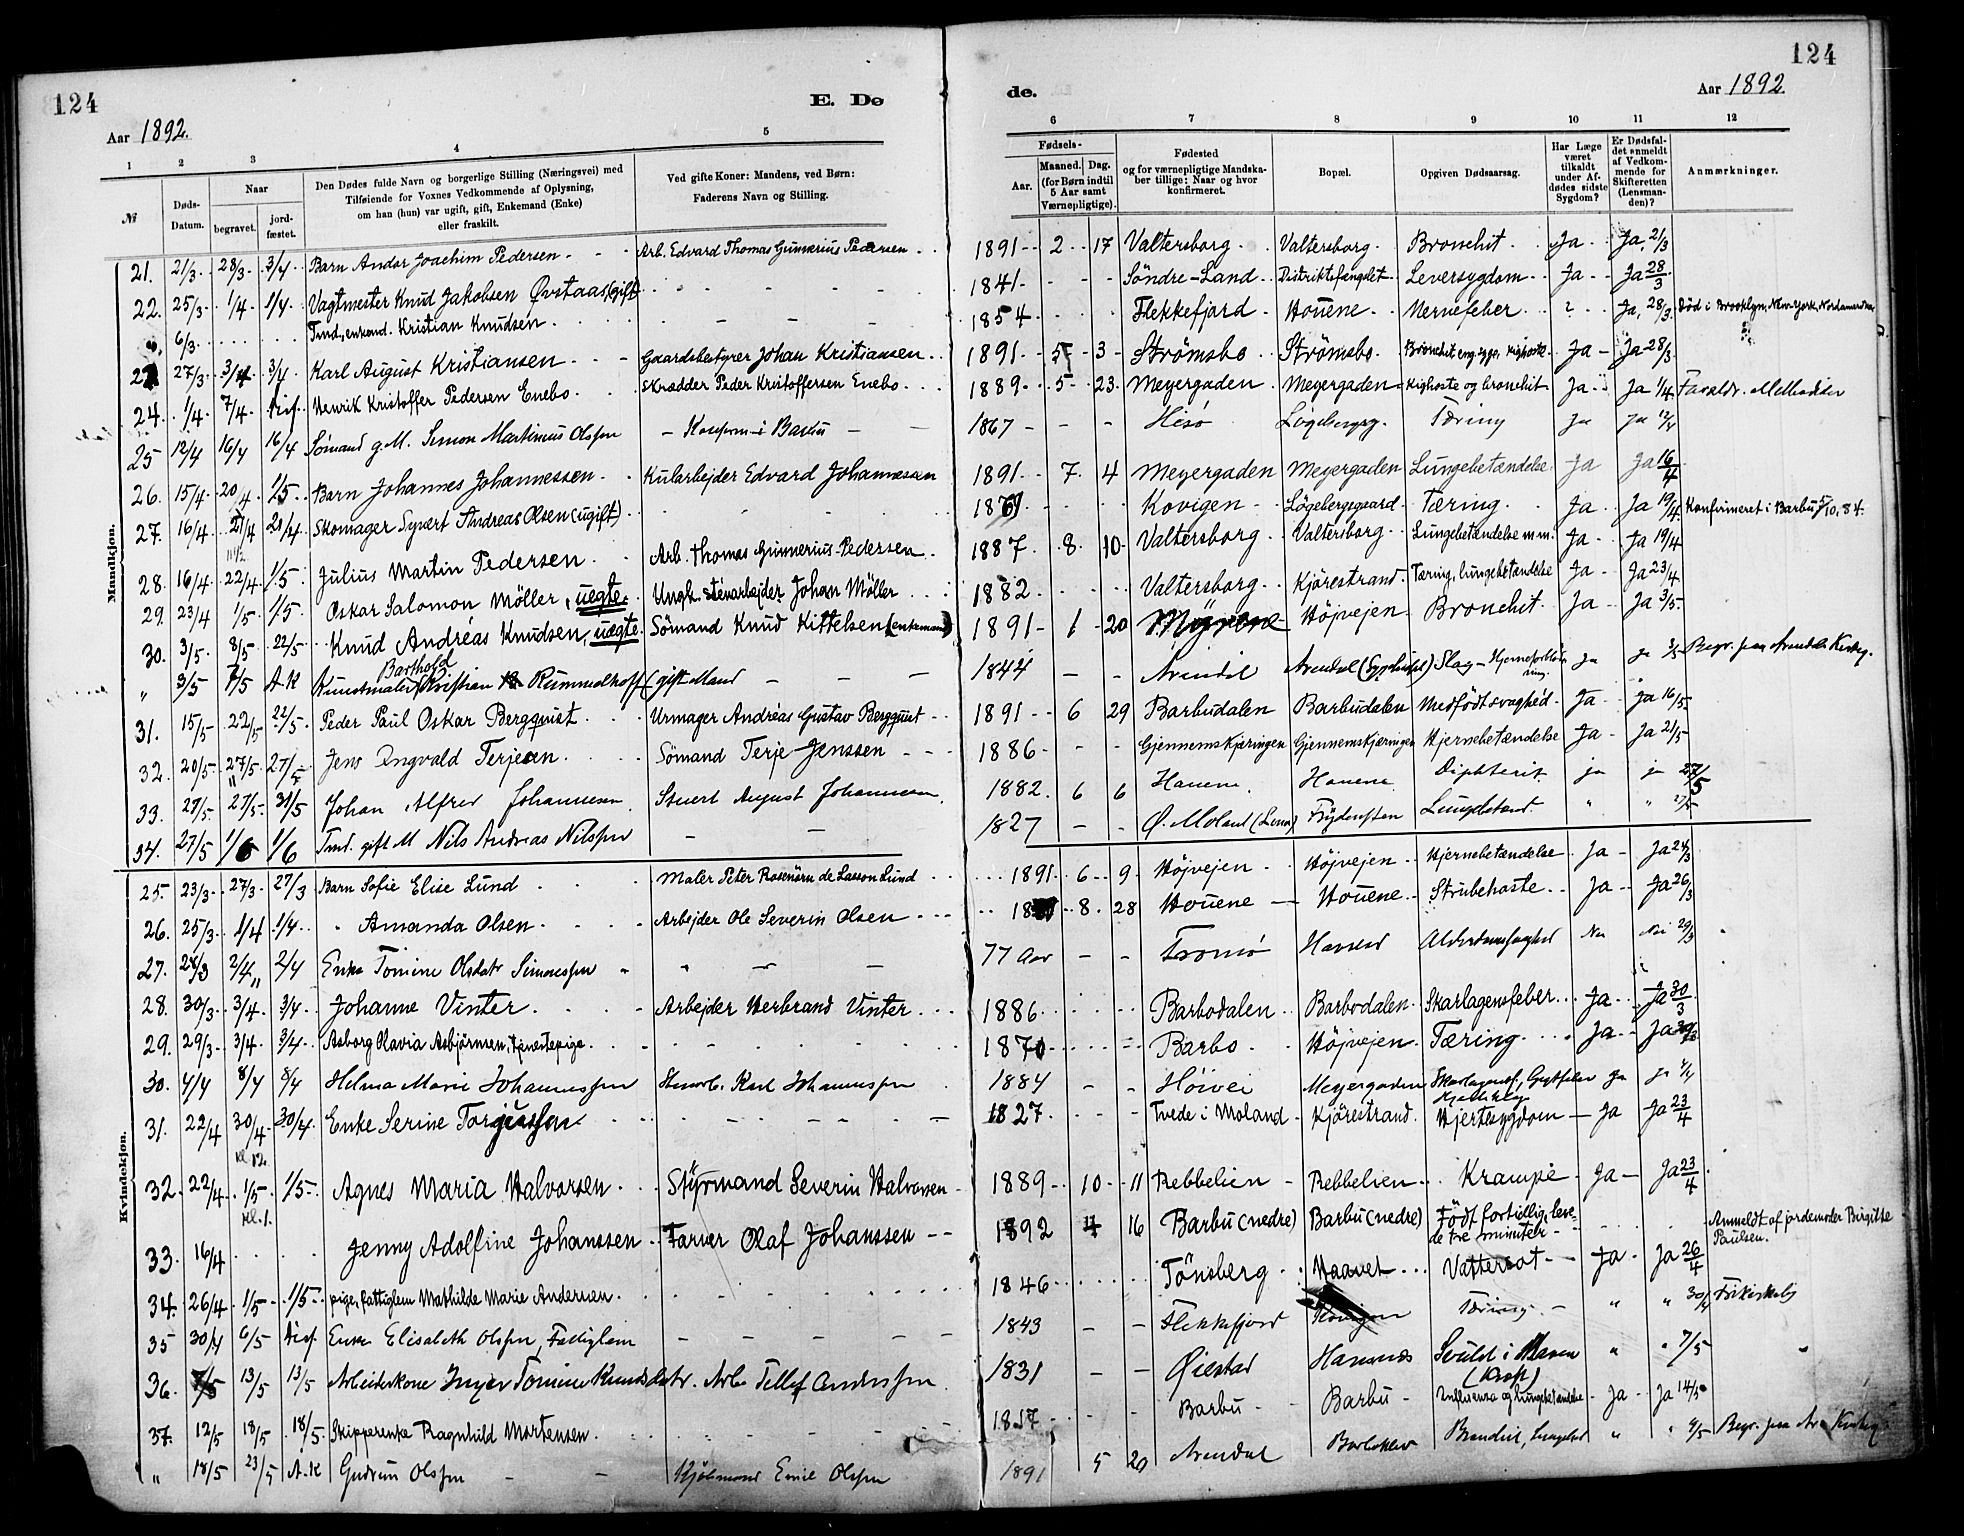 124
E. Dø
Aar 1892.
1 2 3 4 5
№
Døds-Datum.
Naar
begravet.
jord-fæstet.
Den Dødes fulde Navn og borgerlige Stilling (Næringsvei) med
Tilføiende for Voxnes Vedkommende af Oplysning,
om han (hun) var ugift, gift, Enkemand (Enke)
eller fraskilt.
Ved gifte Koner: Mandens, ved Børn:
Faderens Navn og Stilling.
Mandkjøn.
21. 21/3 28/3 3/4 Barn Andor Joachim Pedersen Arb. Edvard Thomas Gunnerius Pedersen
22. 25/3 1/4 1/4 Vagtmester Knud Jakobsen Øvstaas (gift)
6/3 Tmd, enkemd. Kristian Knudsen
27/3 3/4 3/4 Karl August Kristiansen Gaardsbestyrer Johan Kristiansen
24. 1/4 7/4 Disf. Henrik Kristoffer Pedersen Enebo Skrædder Peder Kristoffersen Enebo
25 12/4 16/4 16/4 Sømand g. M. Simon Martinius Olssen Konfirm. i Barbu
26. 15/4 20/4 1/5 Barn Johannes Johannessen Kularbejder Edvard Johannessen
27. 16/4 21/4 21/4 Skomager Syvert Andreas Olsen (ugift)
28. 16/4 22/4 1/5 Julius Martin Pedersen Arb. Thomas Gunnerius Pedersen
29. 23/4 1/5 1/5 Oskar Salomon Möller, uegte Ungk. stenarbejder Johan Möller
30. 3/5 8/5 22/5 Knud Andréas Knudsen, uægte Sömand Knud Kittelsen (enkemand)
Barthold
" 3/5 7/5 A.K Kunstmaler Kristian Rummelhoff (gift Mand
31. 15/5 22/5 22/5 Peder Paul Oskar Bergquist Urmager Andréas Gustav Bergquist
32. 20/5 27/5 27/5 Jens Ingvald Terjesen Sömand Terje Jenssen
33. 27/5 27/5 31/5 Johan Alfred Johannesen Stuert August Johannesen
34. 27/5 1/6 1/6 Tmd. gift M Nils Andreas Nilssen
Kvindekjøn.
25. 23/3 27/3 27/3 Barn Sofie Elise Lund Maler Peter Rosenörn de Lasson Lund
26. 25/3 1/4 1/4 " Amanda Olsen Arbejder Ole Severin Olsen
27. 28/3 2/4 2/4 Enke Tomine Olsdatr Simonssen
28. 30/3 3/4 3/4 Johanne Vinter Arbejder Herbrand Vinter
29. 29/3 3/4 3/4 Asborg Olavia Asbjörnsen, tjenestepige
30. 4/4 8/4 8/4 Helma Marie Johannessen Stuerb. Karl Johannessen
31. 22/4 30/4 30/4 Enke Serine Torjussen
kl. 12.
32. 22/4 1/5 1/5 Agnes Maria Halvorsen Styrmand Severin Halvorsen
kl. 1.
33. 16/4 Jenny Adolfine Johanssen Farver Olaf Johanssen
34. 26/4 1/5 1/5 pige, fattiglem Mathilde Marie Andersen
35 30/4 6/5 Disf. Enke Elisabeth Olssen, Fattiglem
36. 7/5 13/5 13/5 Arbeiderkone Inger Tomine Knudsdatr. Arb. Tellef Anderssen
37. 12/5 18/5 18/5 Skipperenke Ragnhild Mortensen
" 18/5 23/5 A.K Gudrun Olssen Kjøbmand Emil Olssen
124
de.
Aar 1892
6 7 8 9 10 11 12
Fødsels-
Aar.
Maaned. Dag.
(for Børn indtil
5 Aar samt
Værnepligtige).
Fødested
og for værnepligtige Mandska-
ber tillige: Naar og hvor
konfirmeret.
Bopæl.
Opgiven Dødsaarsag.
Har Læge
været
tilkaldt
under Af-
dødes sidste
Sygdom?
Er Dødsfal-
det anmeldt
af Vedkom-
mende for
Skifteretten
(Lensman-
den)?
Anmærkninger.
1891 2 17 Valtersborg Valtersborg Bronchit Ja Ja, 21/3
1841 Söndre-Land Distriktsfængslet Leversygdom Ja Ja 28/3
1854 Flekkefjord Houene Nervefeber ? Ja, 28/3 Död i Brooklyn, New-York, Nordamerika
1891 5 3 Strömsbo Strömsbo Ja Ja 28/3
1889 5 23 Meyergaden Meyergaden Kighoste og bronchit Ja Ja 1/4 Forældr. Methodister
1867 Hisö Lögebergsg. Tæring Ja Ja 12/4
1891 7 4 Meyergaden Meyergaden Lungebetændelse Ja Ja 16/4
1869 Kovigen Lögebergsgaard Tæring Ja Ja 19/4 Konfirmeret i Barbu 5/10, 84.
1887 8 10 Valtersborg Valtersborg Lungebetændelse m.m. Ja Ja 19/4
1882 Valtersborg Kjörestrand Tæring, lungebetændelse Ja Ja 23/4
1891 1 20 Myrene Höjvejen Bronchit Ja Ja 3/5
1844 Arendal Arendal (Sygehuset) Slag - Hjerneforblødning Ja Ja 3/5 Begr. paa Arendals Kirkeg.
1891 6 29 Barbudalen Barbudalen Medfödt svaghed Ja Ja 16/5
1886 Gjennemskjæringen Gjennemskjæringen Hjernebetændelse Ja Ja 21/5
1882 6 6 Houene Houene Diphterit ja ja 27/5
1827 Ø. Moland Frydensten Lungebetænd. " " 27/5
1891 6 9 Höjvejen Höjvejen Hjernebetændelse Ja Ja 24/3
8 28 Houene Houene Strubehoste Ja Ja 26/3
77 Aar Tromö Alderdomssvaghed Nei Nei 29/3
1886 Barbodalen Barbodalen Skarlagensfeber Ja Ja 30/3
1870 Barbo Höjvejen Tæring Ja Ja
1884 Höivei Meyergaden Skarlagensf., Gigtfeber Ja Ja 4/4
1827 Tvede i Moland Kjörestrand Hjertesygdom Ja Ja 23/4
1889 10 11 Rebbelien Rebbelien Krampe Ja Ja 23/4
1892 4 16 Barbu (nedre) Barbu (nedre) Födt fortidlig, leve-
de tre minuter Anmeldt af jordemoder Birgitte
Paulsen.
1846 Tönsberg Haavet Vattersot Ja Ja 26/4
1843 Flekkefjord Kovigen Tæring " " 30/4 Frikirkelig
1831 Øiestad Havsnæs Svulst i Maven " " 7/5
(Kræft)
1817 Barbu Barbu Influensa og lungebetændelse Ja Ja 14/5
1891 5 20 Arendal Barbuklev " " Begr. paa Ar. Kirkeg.